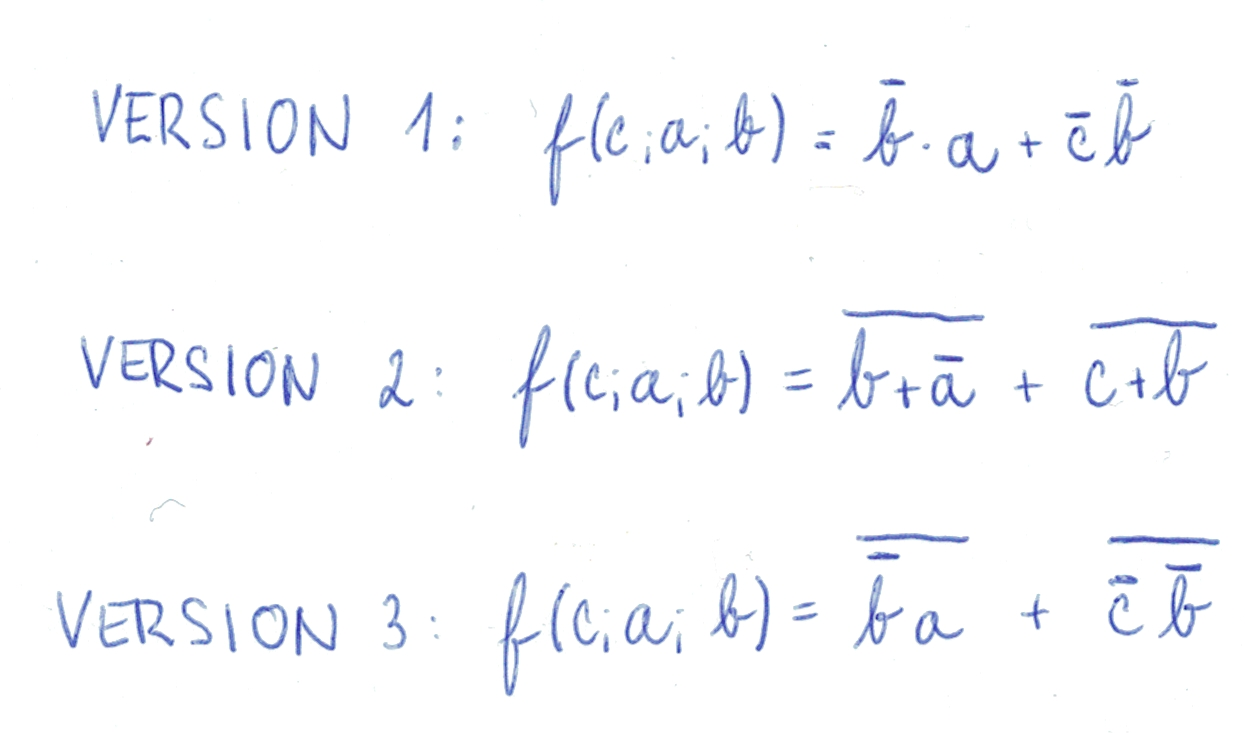 VERSION 1: f(c;a;b) = b̅·a + c̅ b̅
VERSION 2: f(c;a;b) = \overline{b+a̅} + \overline{c+b}
VERSION 3: f(c;a;b) = \overline{b̅ a} + \overline{c̅ b̅}